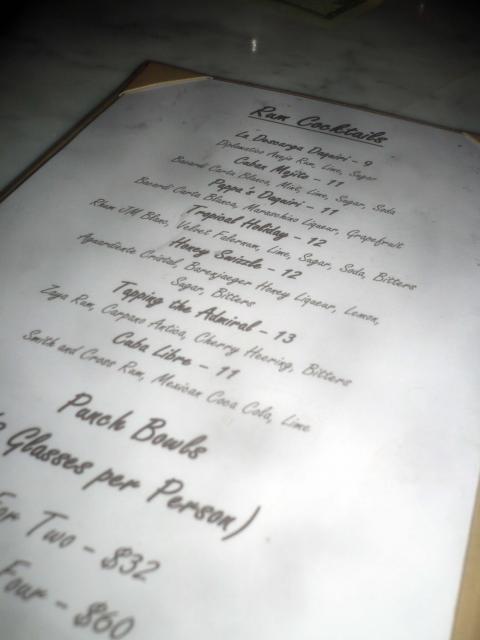 Rum Cocktails
La Descarga Daquiri - 9
Diplomatico Anejo Rum, Lime, Sugar
Cuban Mojito - 11
Bacardi Carta Blanca, Mint, Lime, Sugar, Soda
Pappa's Daquiri - 11
Bacardi Carta Blanca, Maraschino Liqueur, Grapefruit
Tropical Holiday - 12
Rhum JM Blanc, Velvet Falernum, Lime, Sugar, Soda, Bitters
Honey Swizzle - 12
Aguardiente Cristal, Barenjaeger Honey Liqueur, Lemon,
Sugar, Bitters
Tapping the Admiral - 13
Zaya Rum, Carpano Antica, Cherry Heering, Bitters
Cuba Libre - 11
Smith and Cross Rum, Mexican Coca Cola, Lime
Punch Bowls
Glasses per Person)
For Two - $32
Four - $60